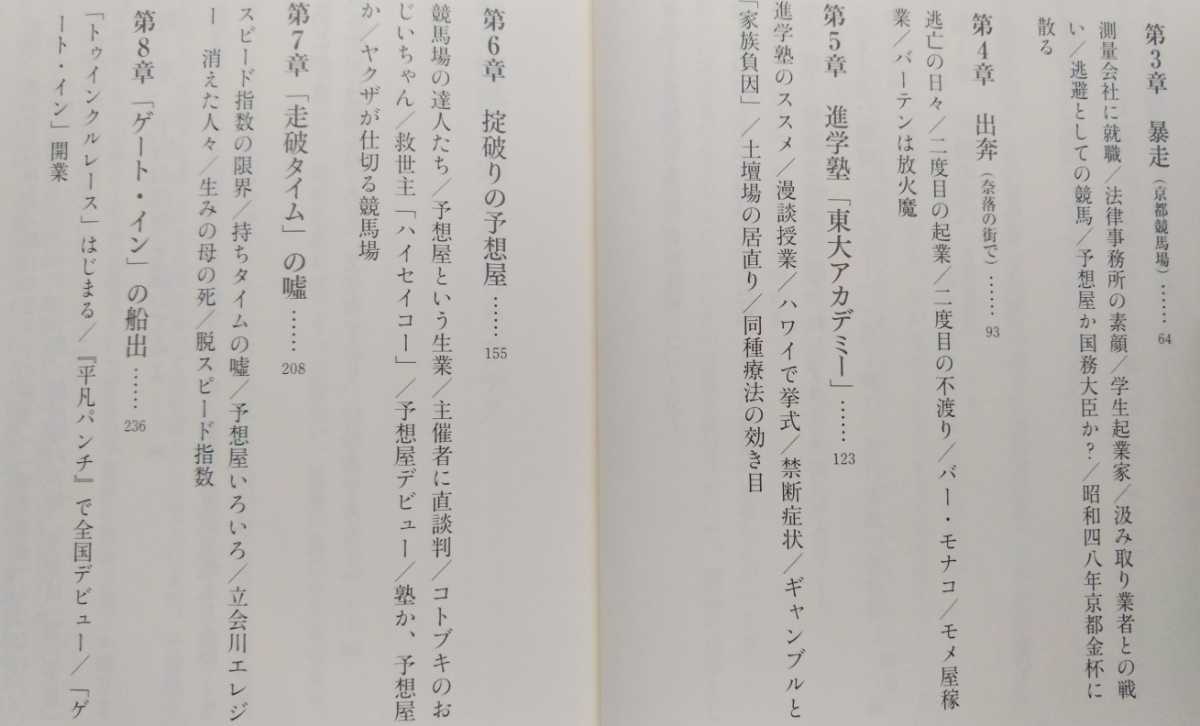 第3章　暴走（京都競馬場）……64
測量会社に就職／法律事務所の素顔／学生起業家／汲み取り業者との戦
い／逃避としての競馬／予想屋か国務大臣か?／昭和四八年京都金杯に
散る
第4章　出奔（奈落の街で）……93
逃亡の日々／二度目の起業／二度目の不渡り／バー・モナコ／モメ屋稼
業／バーテンは放火魔
第5章　進学塾「東大アカデミー」……123
進学塾のススメ／漫談授業／ハワイで挙式／禁断症状／ギャンブルと
「家族負因」／土壇場の居直り／同種療法の効き目
第6章　掟破りの予想屋……155
競馬場の達人たち／予想屋という生業／主催者に直談判／コトブキのお
じいちゃん／救世主「ハイセイコー」／予想屋デビュー／塾か、予想屋
か／ヤクザが仕切る競馬場
第7章「走破タイム」の嘘……208
スピード指数の限界／持ちタイムの嘘／予想屋いろいろ／立会川エレジ
ー　消えた人々／生みの母の死／脱スピード指数
第8章「ゲート・イン」の船出……236
「トゥインクルレース」はじまる／『平凡パンチ』で全国デビュー／「ゲ
ート・イン」開業